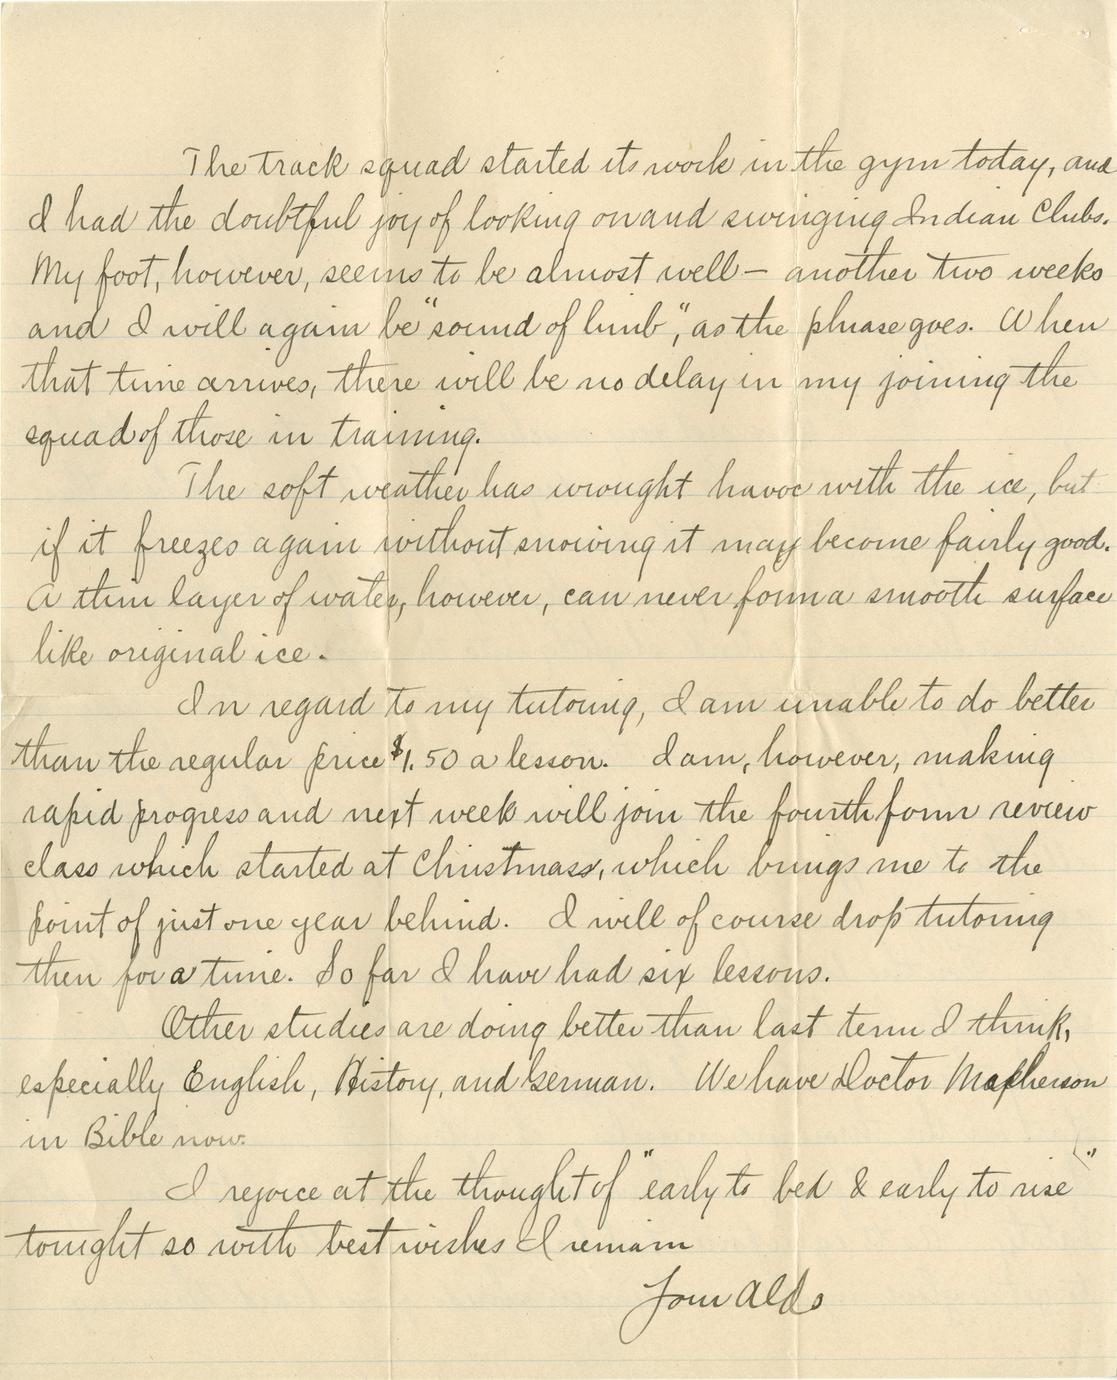 The track squad started its work in the gym today, and
I had the doubtful joy of looking on and swinging Indian Clubs.
My foot, however, seems to be almost well — another two weeks
and I will again be "sound of limb", as the phrase goes. When
that time arrives, there will be no delay in my joining the
squad of those in training.
The soft weather has wrought havoc with the ice, but
if it freezes again without snowing it may become fairly good.
A thin layer of water, however, can never form a smooth surface
like original ice.
In regard to my tutoring, I am unable to do better
than the regular price $1.50 a lesson. I am, however, making
rapid progress and next week will join the fourth form review
class which started at Christmass, which brings me to the
point of just one year behind. I will of course drop tutoring
then for a time. So far I have had six lessons.
Other studies are doing better than last term I think,
especially English, History, and German. We have Doctor Mapherson
in Bible now.
I rejoice at the thought of "early to bed & early to rise"
tonight so with best wishes I remain
Aldo